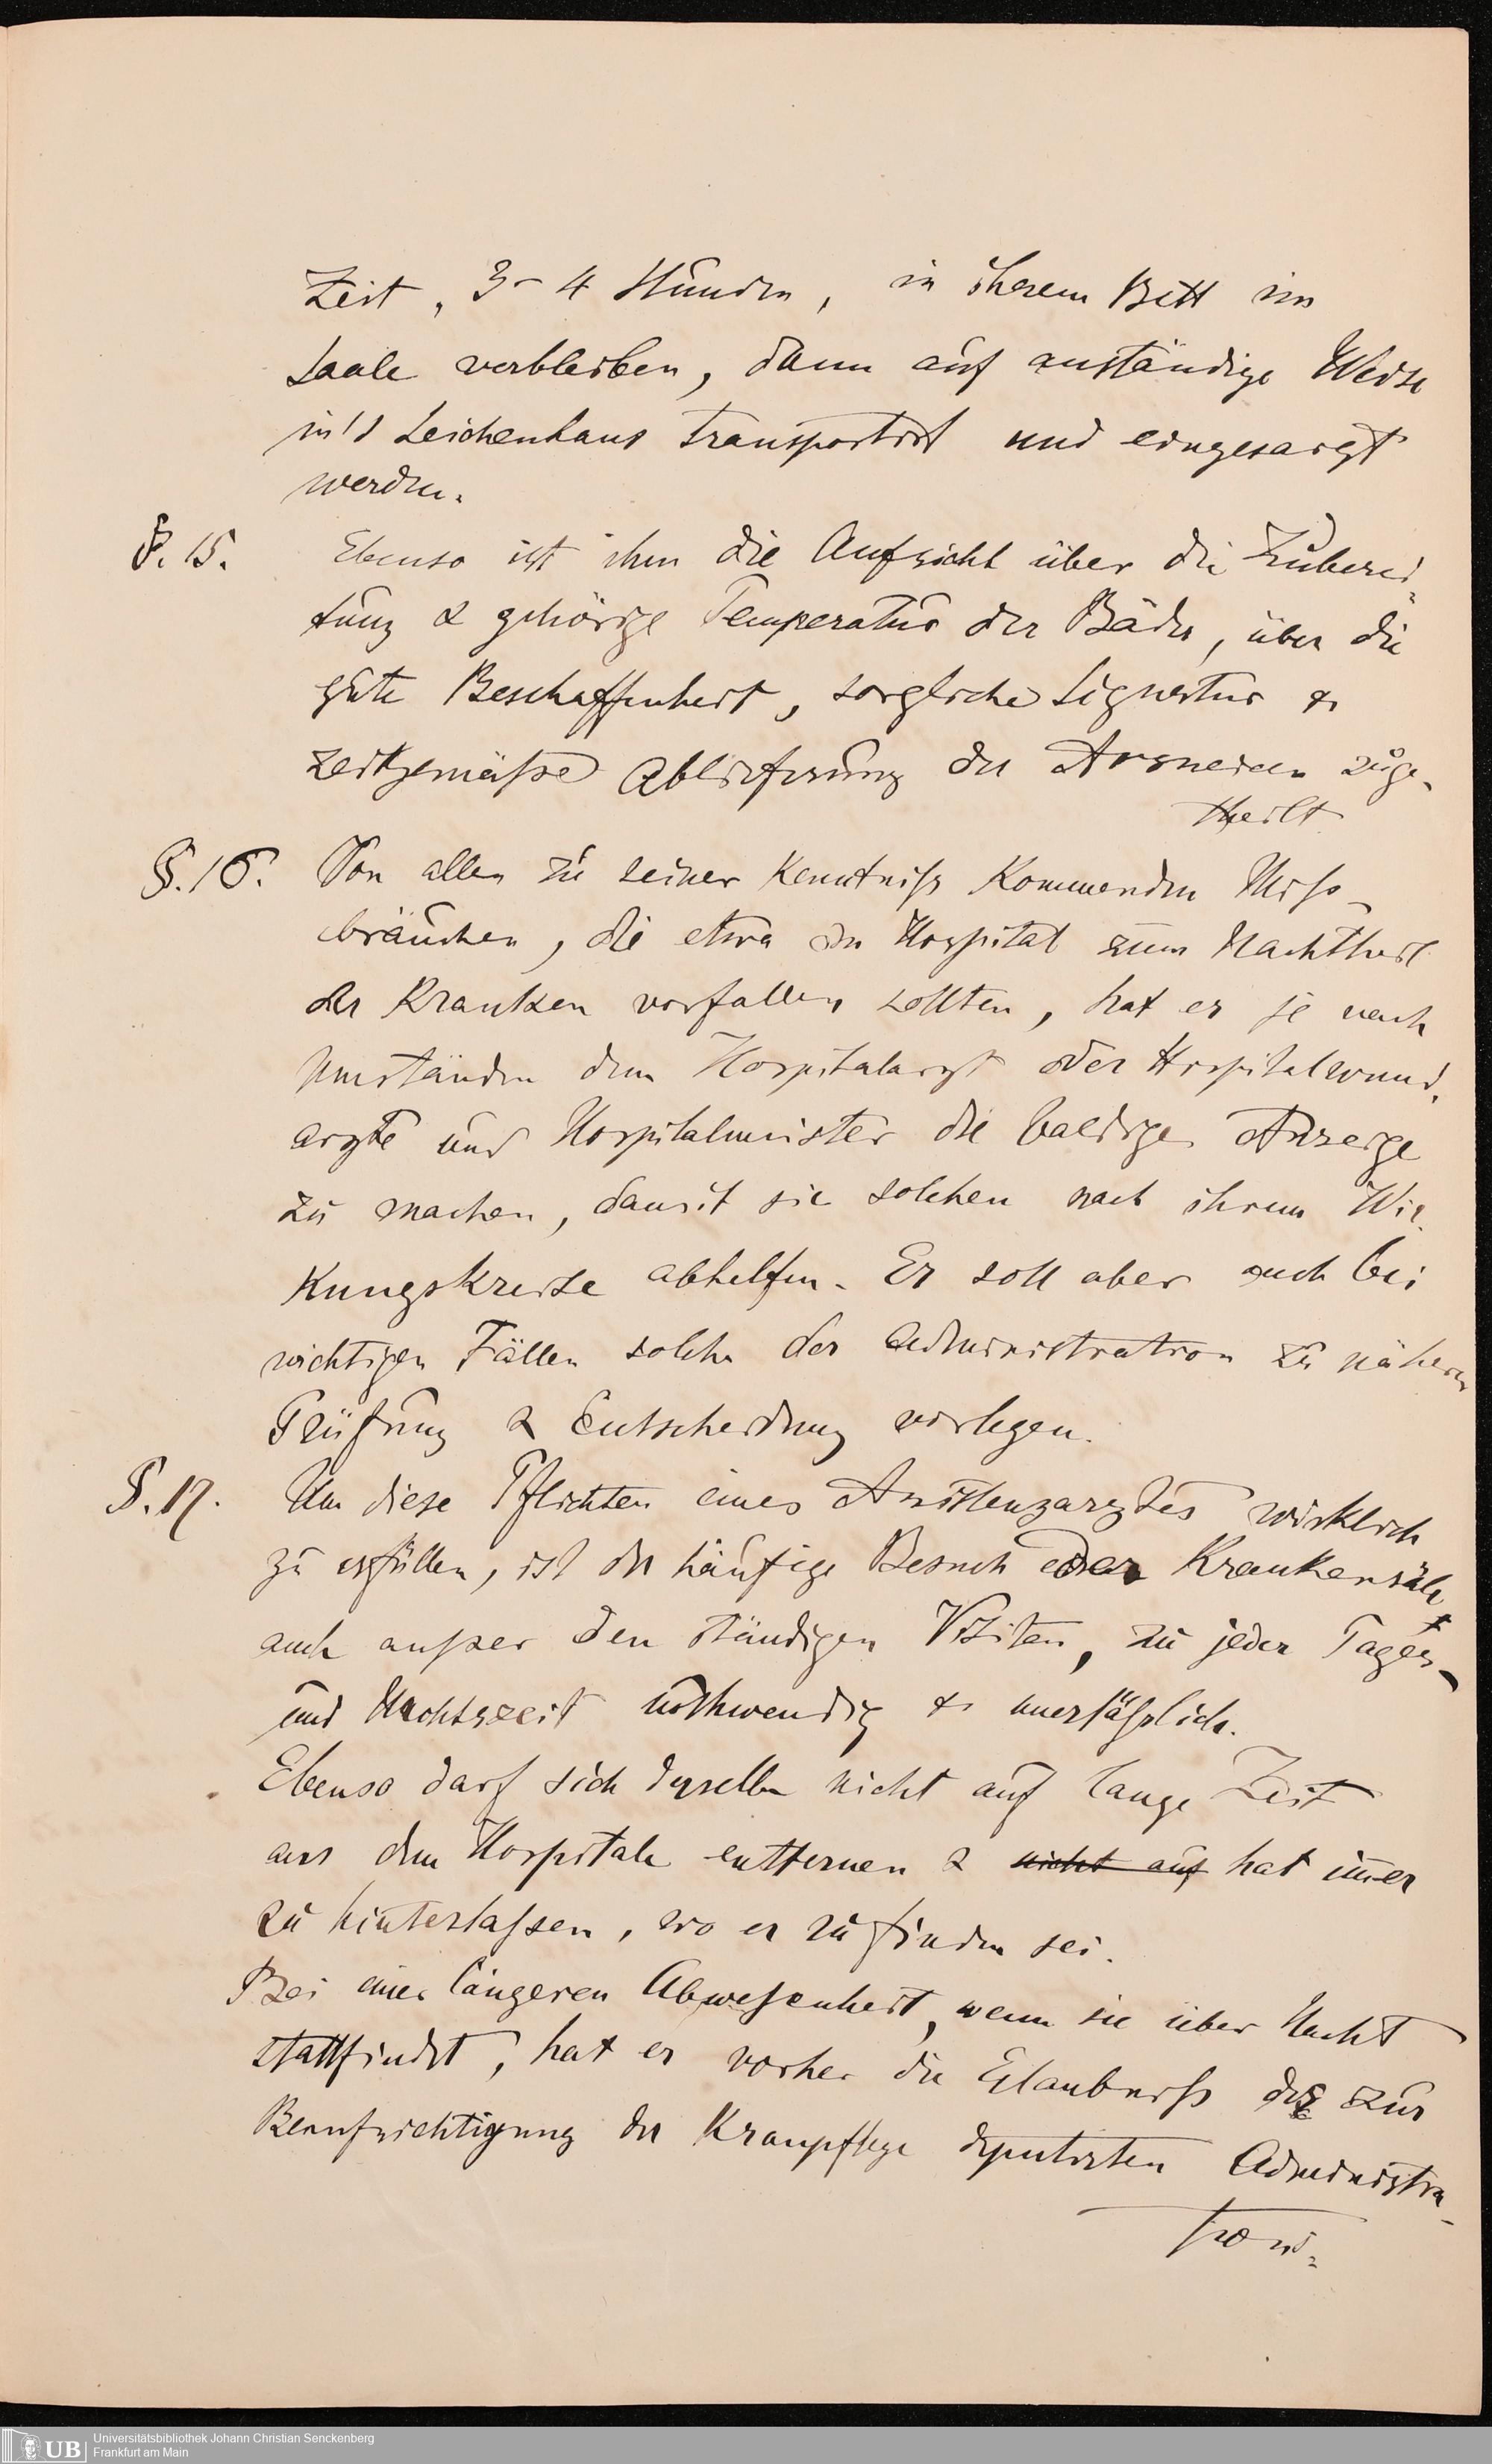 Zeit, 3-4 Stunden, in ihrem Bett im
Saale verbleiben, dann auf anständige Weise
in's Leichenhaus transportirt und eingesargt
werden.
§. 15. Ebenso ist ihm die Aufsicht über die Zuberei-
tung & gehörige Temperatur der Bäder, über die
gute Beschaffenheit, sorgliche Signatur &
zeitgemäße Ablieferung der Arzneien zuge-
theilt
§. 16. Von allen zu seiner Kenntniß kommenden Miß-
bräuchen, die etwa im Hospital zum Nachtheil
der Kranken vorfallen sollten, hat er je nach
Umständen dem Hospitalarzt oder Hospitalwund-
arzte und Hospitalmeister die baldige Anzeige
zu machen, damit sie solchen nach ihrem Wir-
kungskreise abhelfen. Er soll aber auch bei
wichtigen Fällen solche der Administration zu näherer
Prüfung & Entscheidung vorlegen.
§. 17. Um diese Pflichten eines Assistenzarztes wirklich
zu erfüllen, ist der häufige Besuch der Krankensäle
auch außer den ständigen Visiten, zu jeder Tages-
und Nachtszeit nothwendig & unerläßlich.
Ebenso darf sich derselbe nicht auf lange Zeit
aus dem Hospitale entfernen & nicht auf hat im̅er
zu hinterlaßen, wo er zu finden sei.
Bei einer längeren Abwesenheit, wenn sie über Nacht
stattfindet, hat er vorher die Erlaubniß der zur
Beaufsichtigung der Kranpflege deputirten Administra-
tion.
Universitätsbibliothek Johann Christian Senckenberg
Frankfurt am Main
UB